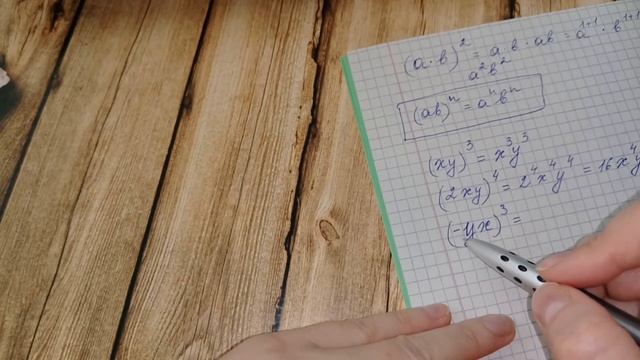 (a·b)² = a·b·ab = a¹⁺¹·b¹⁺¹
a²b²
(ab)ⁿ = aⁿbⁿ
(xy)³ = x³y³
(2xy)⁴ = 2⁴x⁴y⁴ = 16x⁴y
(-yx)³ =